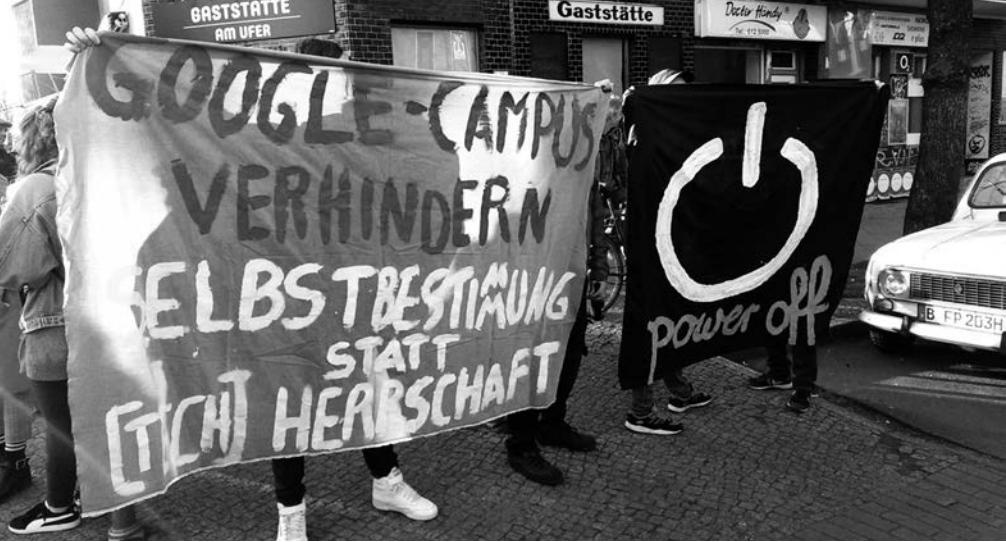 GASTSTÄTTE
AM UFER
Gaststätte
Doctor Handy
GOOGLE-CAMPUS
VERHINDERN
SELBSTBESTIMMUNG
STATT
[T]CH] HERRSCHAFT
power off
O2
D2
B FP 203H